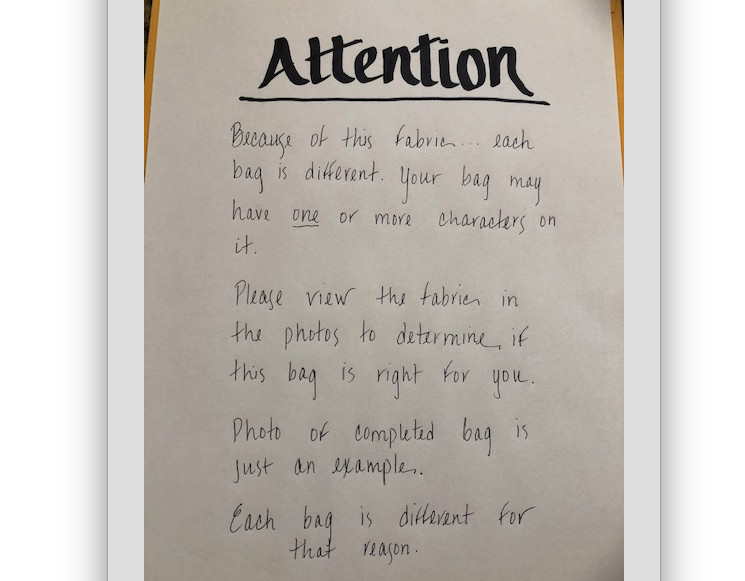 Attention
Because of this fabric... each
bag is different. Your bag may
have one or more characters on
it.
Please view the fabric in
the photos to determine if
this bag is right for you.
Photo of completed bag is
just an example.
Each bag is different for
that reason.